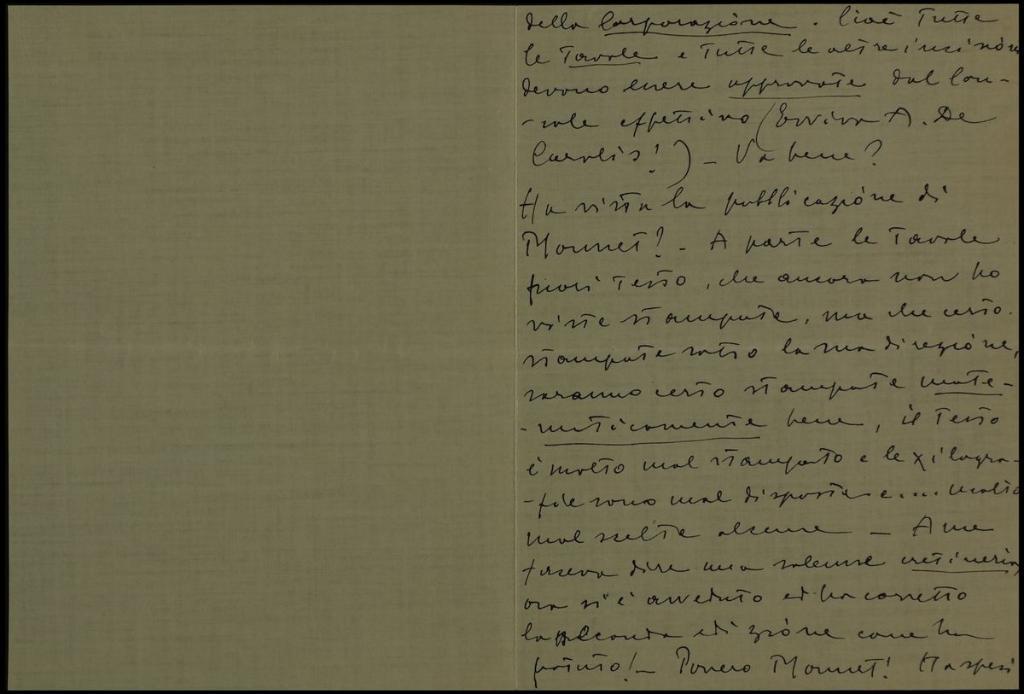 della Corporazione. Cioè Tutte
le Tavole e Tutte le altre incisioni
devono essere approvate dal Con-
-sole effettivo (Evviva A. De
Carolis!) - Va bene?
Ha vista la pubblicazione di
Monnet? - A parte le Tavole
fuori Testo, che ancora non ho
viste stampate, ma che certo
stampate sotto la sua direzione,
saranno certo stampate mate-
-maticamente bene, il Testo
è molto mal stampato e le xilogra-
-fie sono mal disposte e.... molto
mal scelte alcune - A me
faceva dire una solenne cretineria,
ora si è avveduto ed ha corretto
la seconda edizione come ha
potuto! - Povero Monnet! Ha spesi